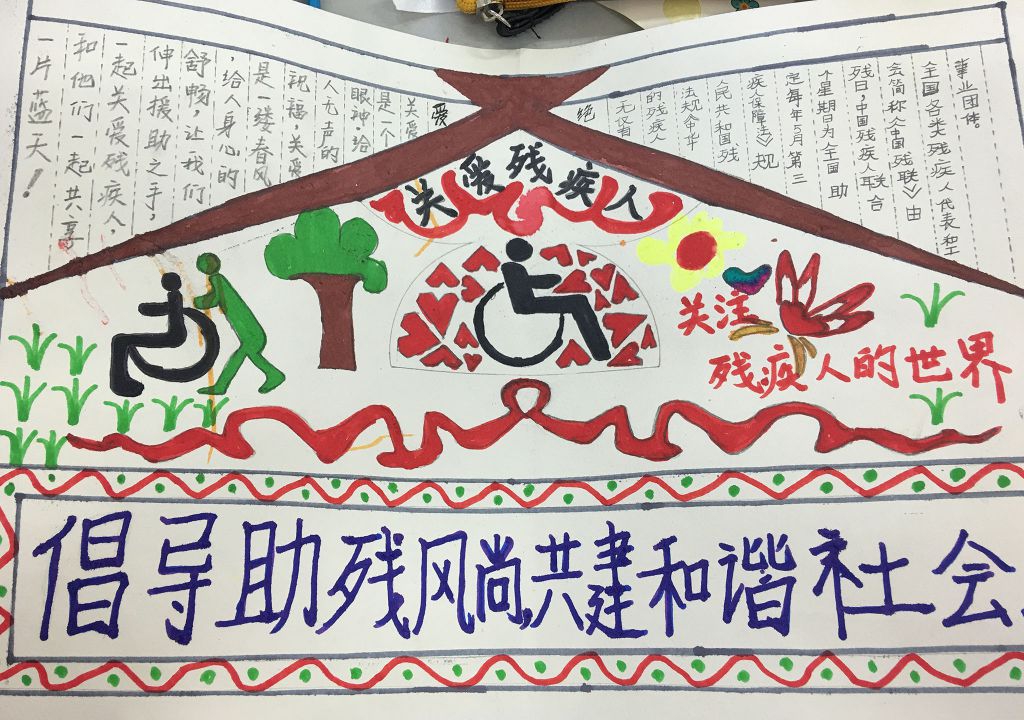 关爱残疾人
爱
关爱
是一个
眼神,给
人无声的
祝福,关爱
是一缕春风
,给人身心的
舒畅,让我们
伸出援助之手,
一起关爱残疾人,
和他们一起共享
一片蓝天!
绝
无仅有
的残疾人
法规《中华
民共和国残
疾人保障法》规
定每年5月第三
个星期日为全国助
残日,中国残疾人联合
会简称《中国残联》由
全国各类残疾人代表和工
事业团体。
关注
残疾人的世界
倡导助残风尚,共建和谐社会